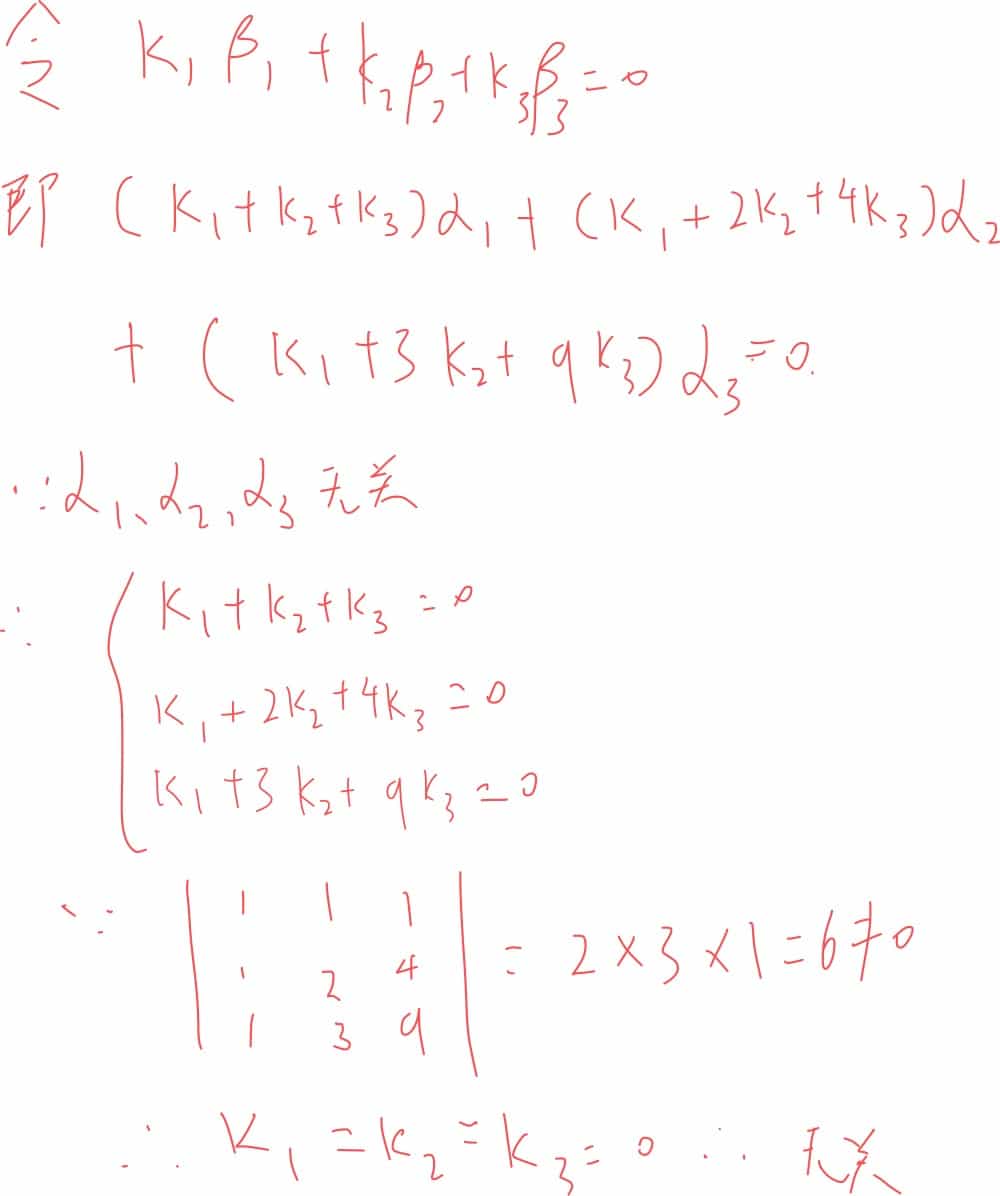 令 k₁β₁+k₂β₂+k₃β₃=0
即 (k₁+k₂+k₃)α₁+(k₁+2k₂+4k₃)α₂
+(k₁+3k₂+9k₃)α₃=0.
∵α₁、α₂,α₃无关
∴ { k₁+k₂+k₃=0
k₁+2k₂+4k₃=0
k₁+3k₂+9k₃=0
∵ | 1 1 1 |
| 1 2 4 | = 2×3×1=6≠0
| 1 3 9 |
∴ k₁=k₂=k₃=0 ∴ 无关